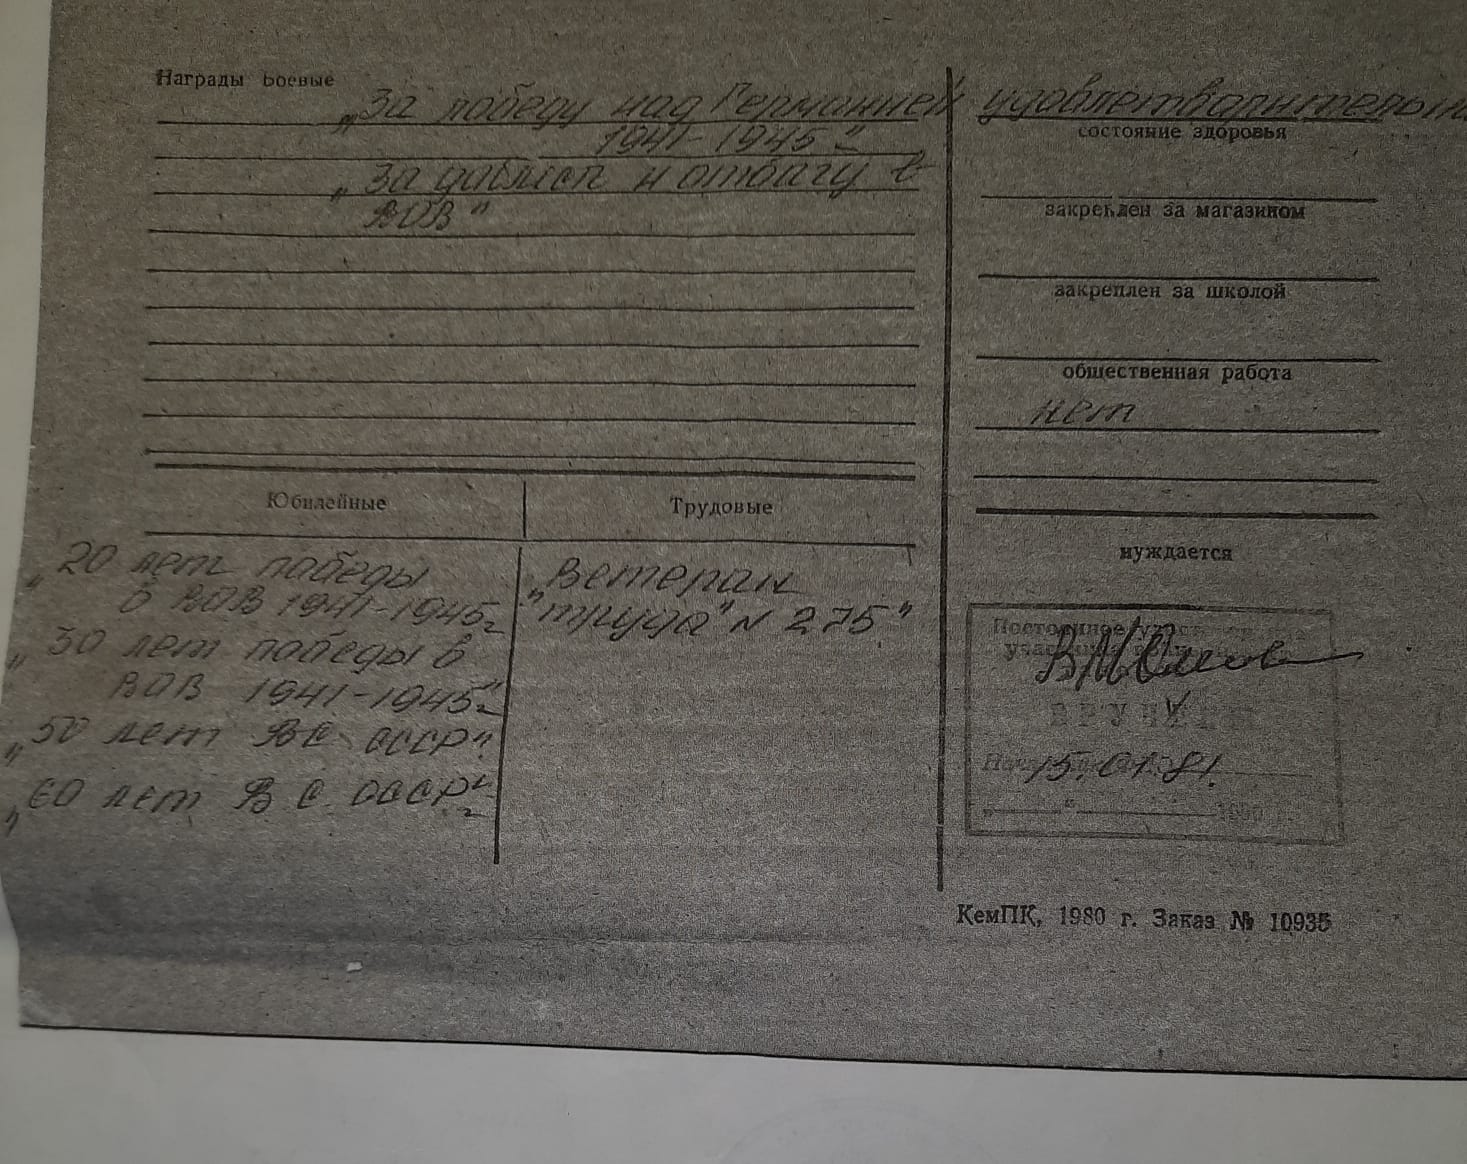 Награды боевые
„За победу над Германией
1941-1945"
„За доблесть и отвагу в
ВОВ"
Юбилейные
„20 лет победы
в ВОВ 1941-1945"
„30 лет победы в
ВОВ 1941-1945"
„50 лет ВС СССР"
„60 лет ВС СССР"
Трудовые
„Ветеран
труда" № 275"
удовлетварительн
состояние здоровья
закреплен за магазином
закреплен за школой
общественная работа
нет
нуждается
15.01.81.
КемПК, 1980 г. Заказ № 10935